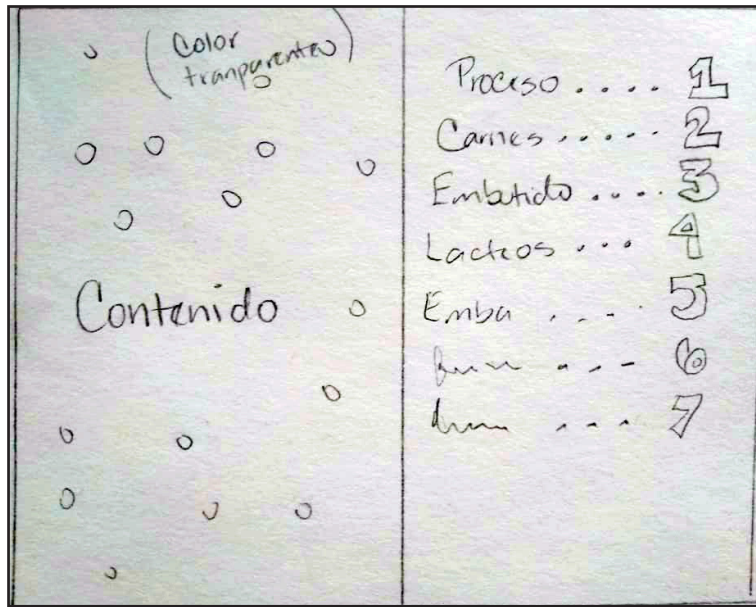 (Color
tranparente)
Contenido
Proceso .... 1
Carnes ..... 2
Embutido .... 3
Lacteos ... 4
Emba .... 5
... 6
... 7